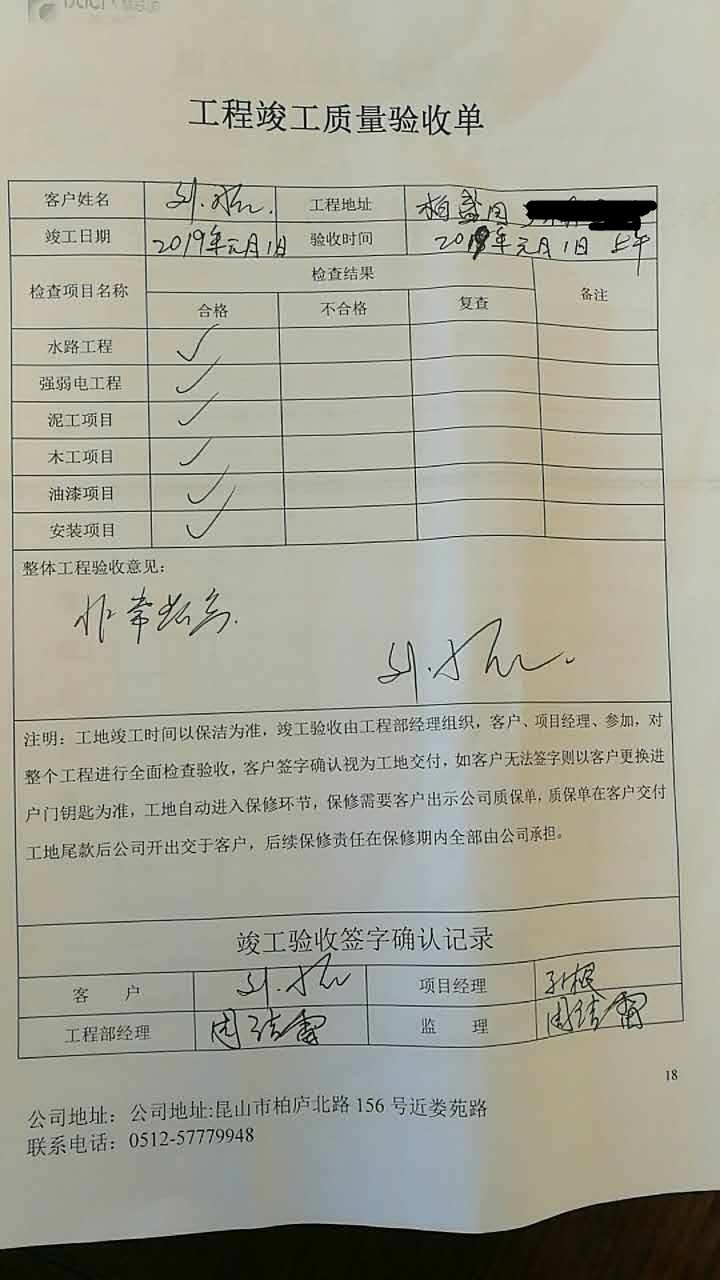 工程竣工质量验收单
客户姓名 工程地址
竣工日期 2019年元月1日 验收时间 2019年元月1日 上午
检查项目名称 检查结果 备注
合格 不合格 复查
水路工程 ✓
强弱电工程 ✓
泥工项目 ✓
木工项目 ✓
油漆项目 ✓
安装项目 ✓
整体工程验收意见：
非常
注明：工地竣工时间以保洁为准，竣工验收由工程部经理组织，客户、项目经理、参加，对
整个工程进行全面检查验收，客户签字确认视为工地交付，如客户无法签字则以客户更换进
户门钥匙为准，工地自动进入保修环节，保修需要客户出示公司质保单，质保单在客户交付
工地尾款后公司开出交于客户，后续保修责任在保修期内全部由公司承担。
竣工验收签字确认记录
客 户 项目经理
工程部经理 监 理
18
公司地址：公司地址:昆山市柏庐北路 156 号近娄苑路
联系电话：0512-57779948